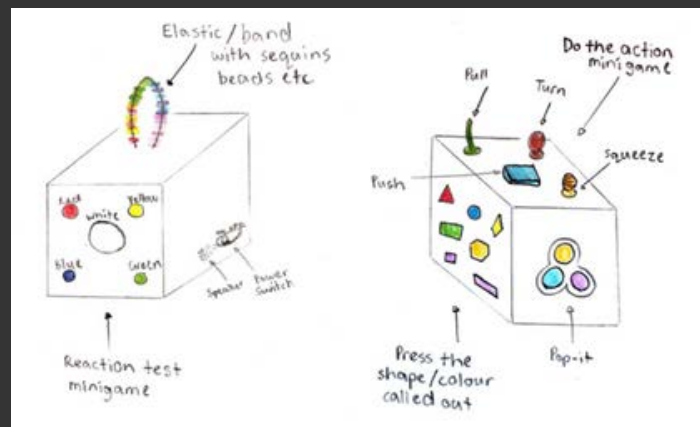 Elastic/band
with sequins
beads etc
Red
Yellow
White
Blue
Green
Speaker
Power
Switch
Reaction test
minigame
Do the action
minigame
Pull
Turn
Squeeze
Push
Press the
shape/colour
called out
Pop-it